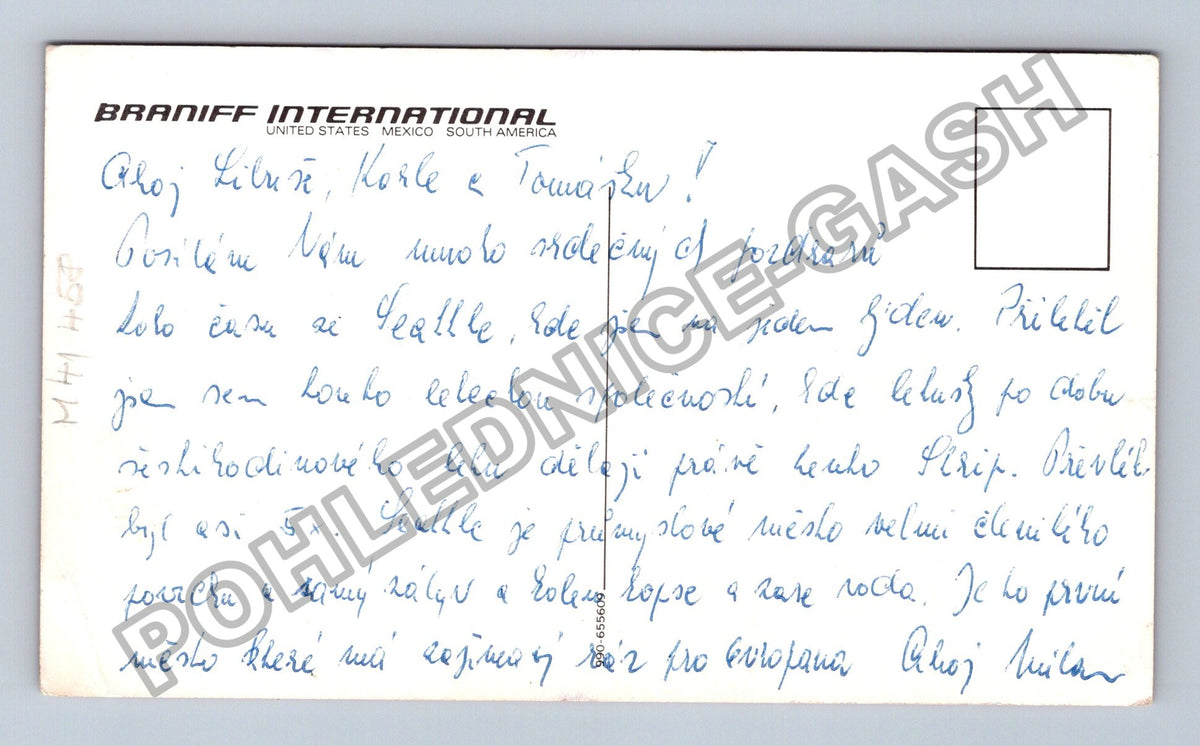 BRANIFF INTERNATIONAL
UNITED STATES MEXICO SOUTH AMERICA
Ahoj Libuše, Karle a Tomášku!
Posílám Vám mnoho srdečných pozdravů
toho času ze Seattle, kde jsem na jeden týden. Přiletěl
jsem sem touto leteckou společností, kde letušky po dobu
šestihodinového letu dělají právě tento Strip. Převlek
byl asi 5x. Seattle je průmyslové město velmi členitého
povrchu a samý záliv a kolem kopce a zase voda. Je to první
město které má zajímavý ráz pro evropana Ahoj Milan
990-655609
M 41 458
POHLEDNICE-GASH